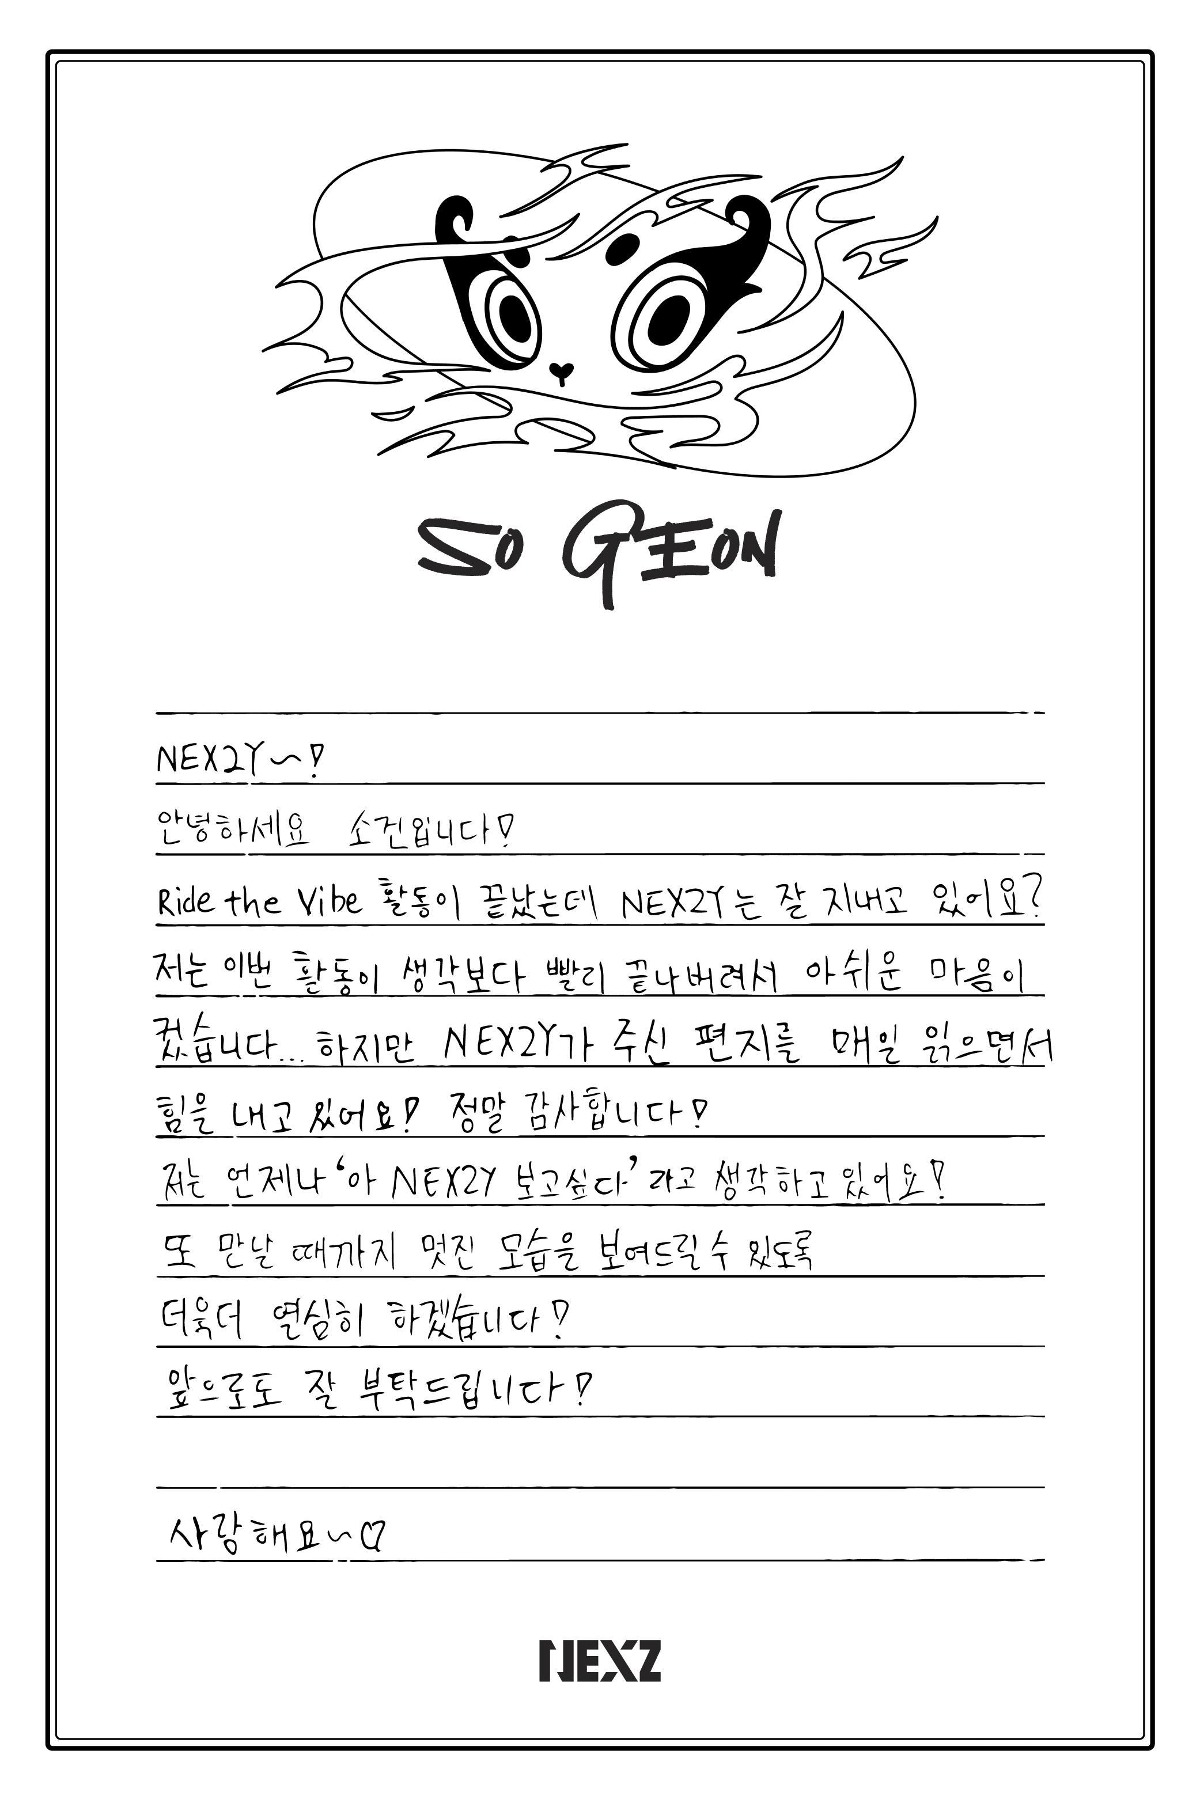 SO GEON
NEX2Y~!
안녕하세요 소건입니다!
Ride the Vibe 활동이 끝났는데 NEX2Y는 잘 지내고 있어요?
저는 이번 활동이 생각보다 빨리 끝나버려서 아쉬운 마음이
컸습니다... 하지만 NEX2Y가 주신 편지를 매일 읽으면서
힘을 내고 있어요! 정말 감사합니다!
저는 언제나 '아 NEX2Y 보고싶다' 라고 생각하고 있어요!
또 만날 때까지 멋진 모습을 보여드릴 수 있도록
더욱더 열심히 하겠습니다!
앞으로도 잘 부탁드립니다!
사랑해요~♡
NEXZ